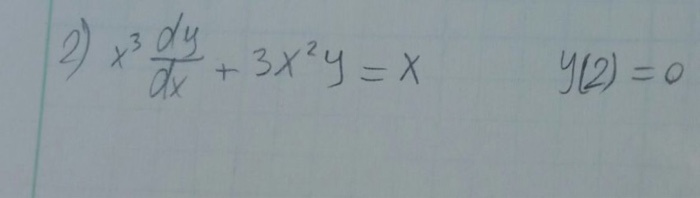 2) x³ dy/dx + 3x²y = x y(2) = 0